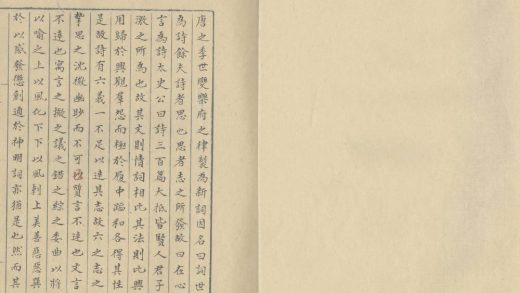 唐之季世變樂府之律製為新詞因名曰詞世
為詩餘夫詩者思也思者志之所發故曰在心
言為詩太史公曰詩三百篇大抵皆賢人君子
激之所為也故其文則情詞相比其法則比興
用歸於興觀羣怨而極於履中蹈和各得其性
是故詩有六義一不足以達其志故六之志之
摯思之沈微幽眇而不可 質言不達也文言
不達也寓言之擬之議之錯之綜之委曲以將
以喻之上以風化下下以風刺上美善惡惡與
於以感發懲創通於神明詞亦猶是也然而其